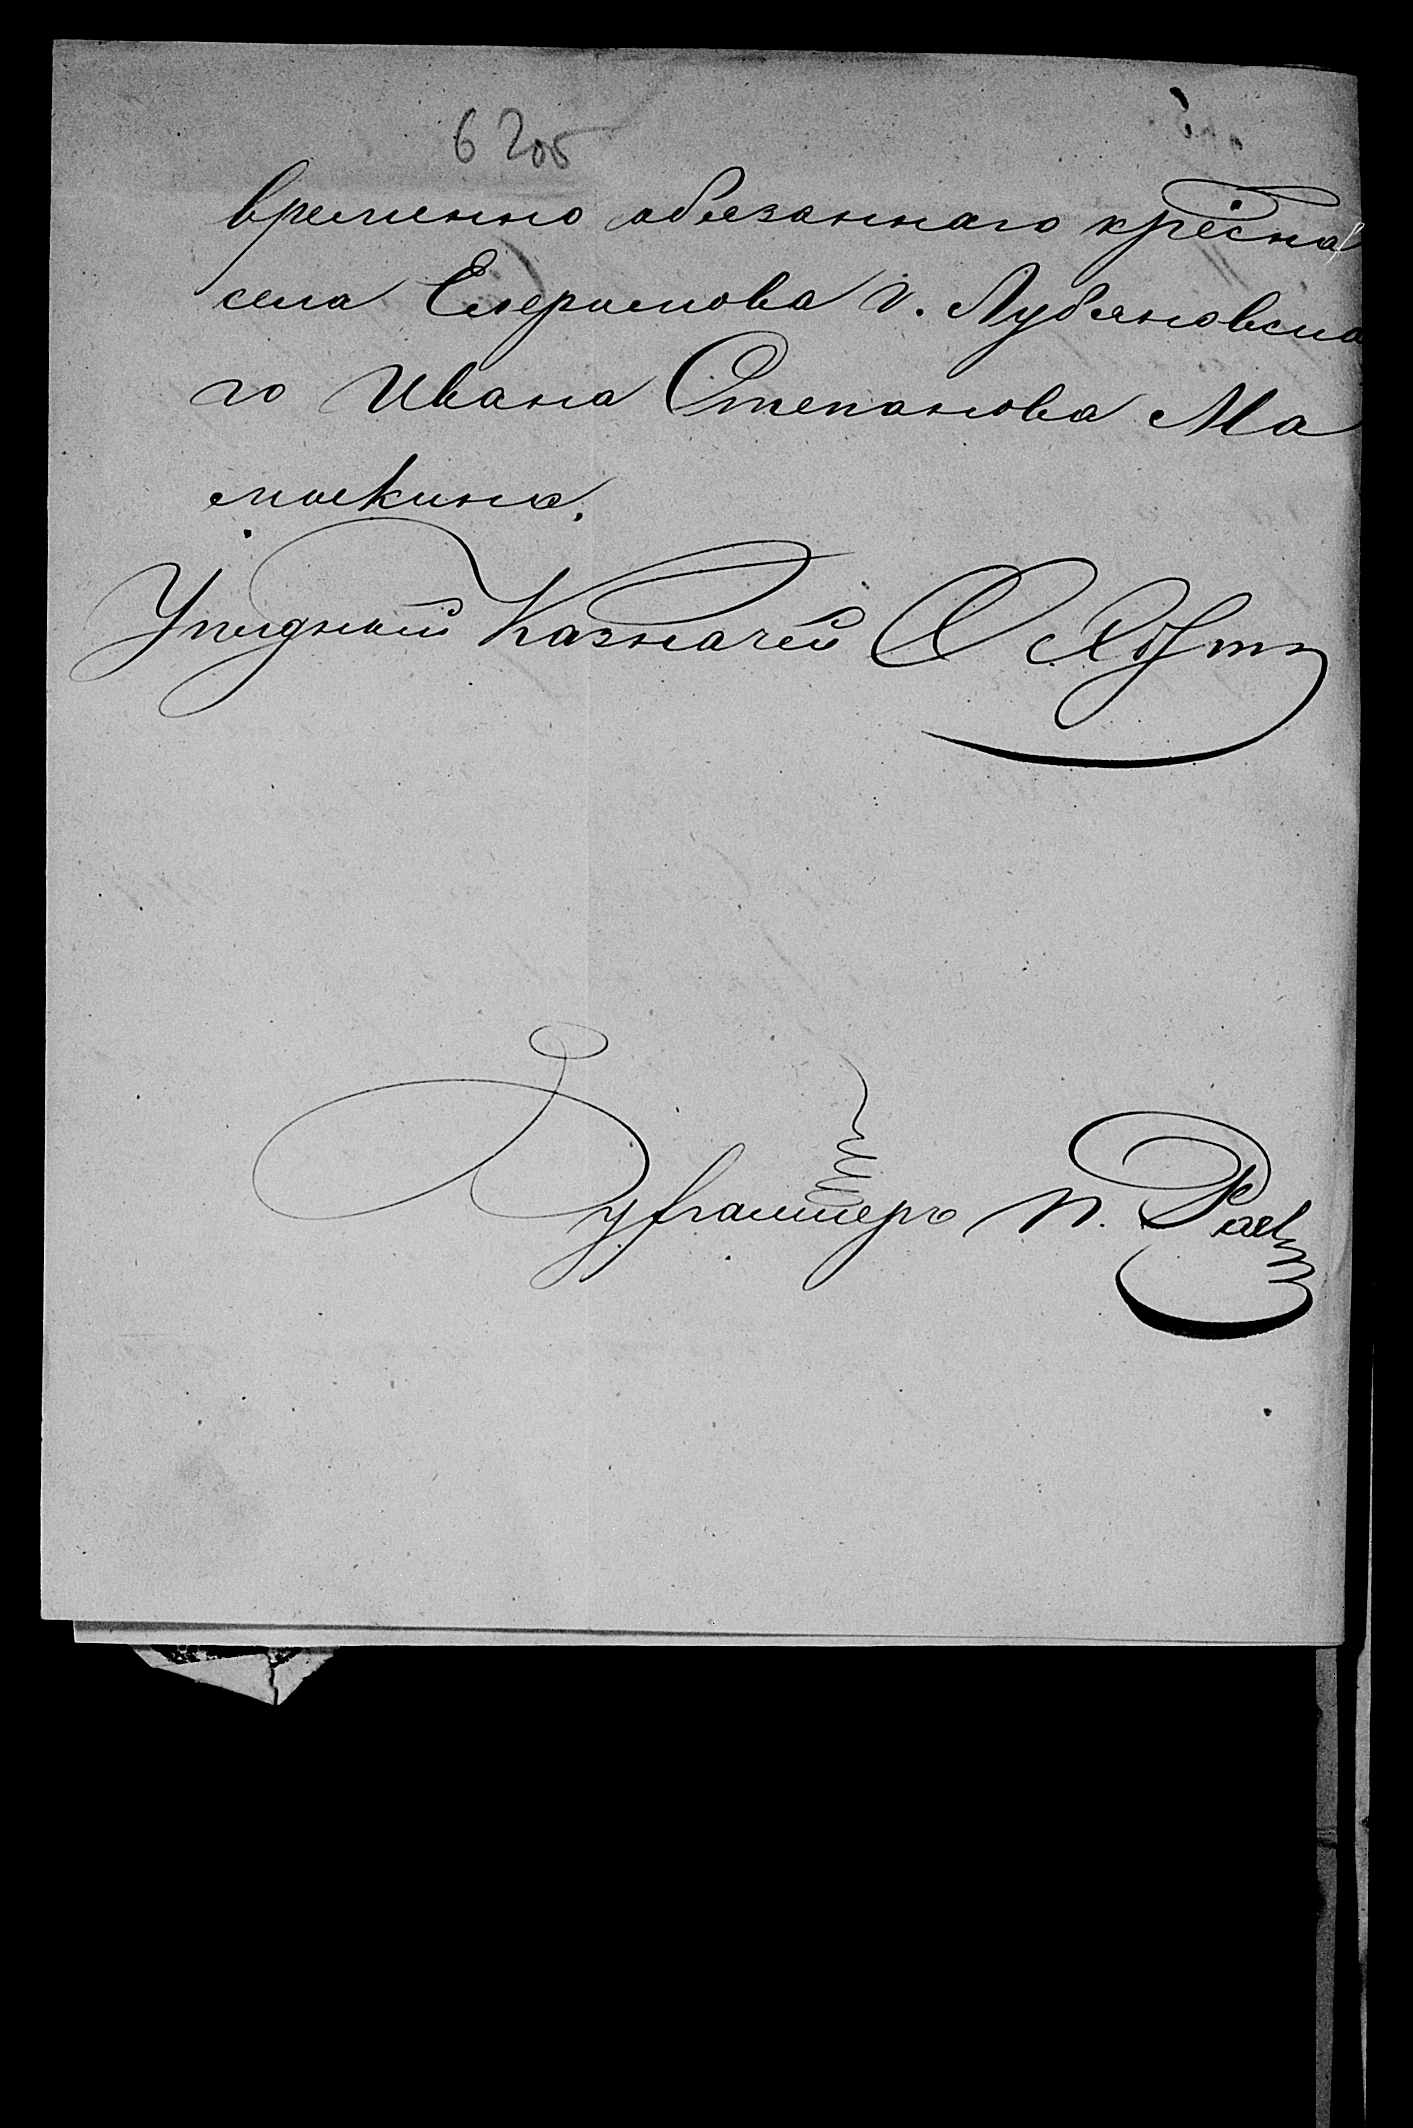 6 205
временно обязаннаго кресна
села г. Лубяновска
го Ивана Степанова Ма
мыкина.
Уѣздный Казначей
Бухгалтеръ П.